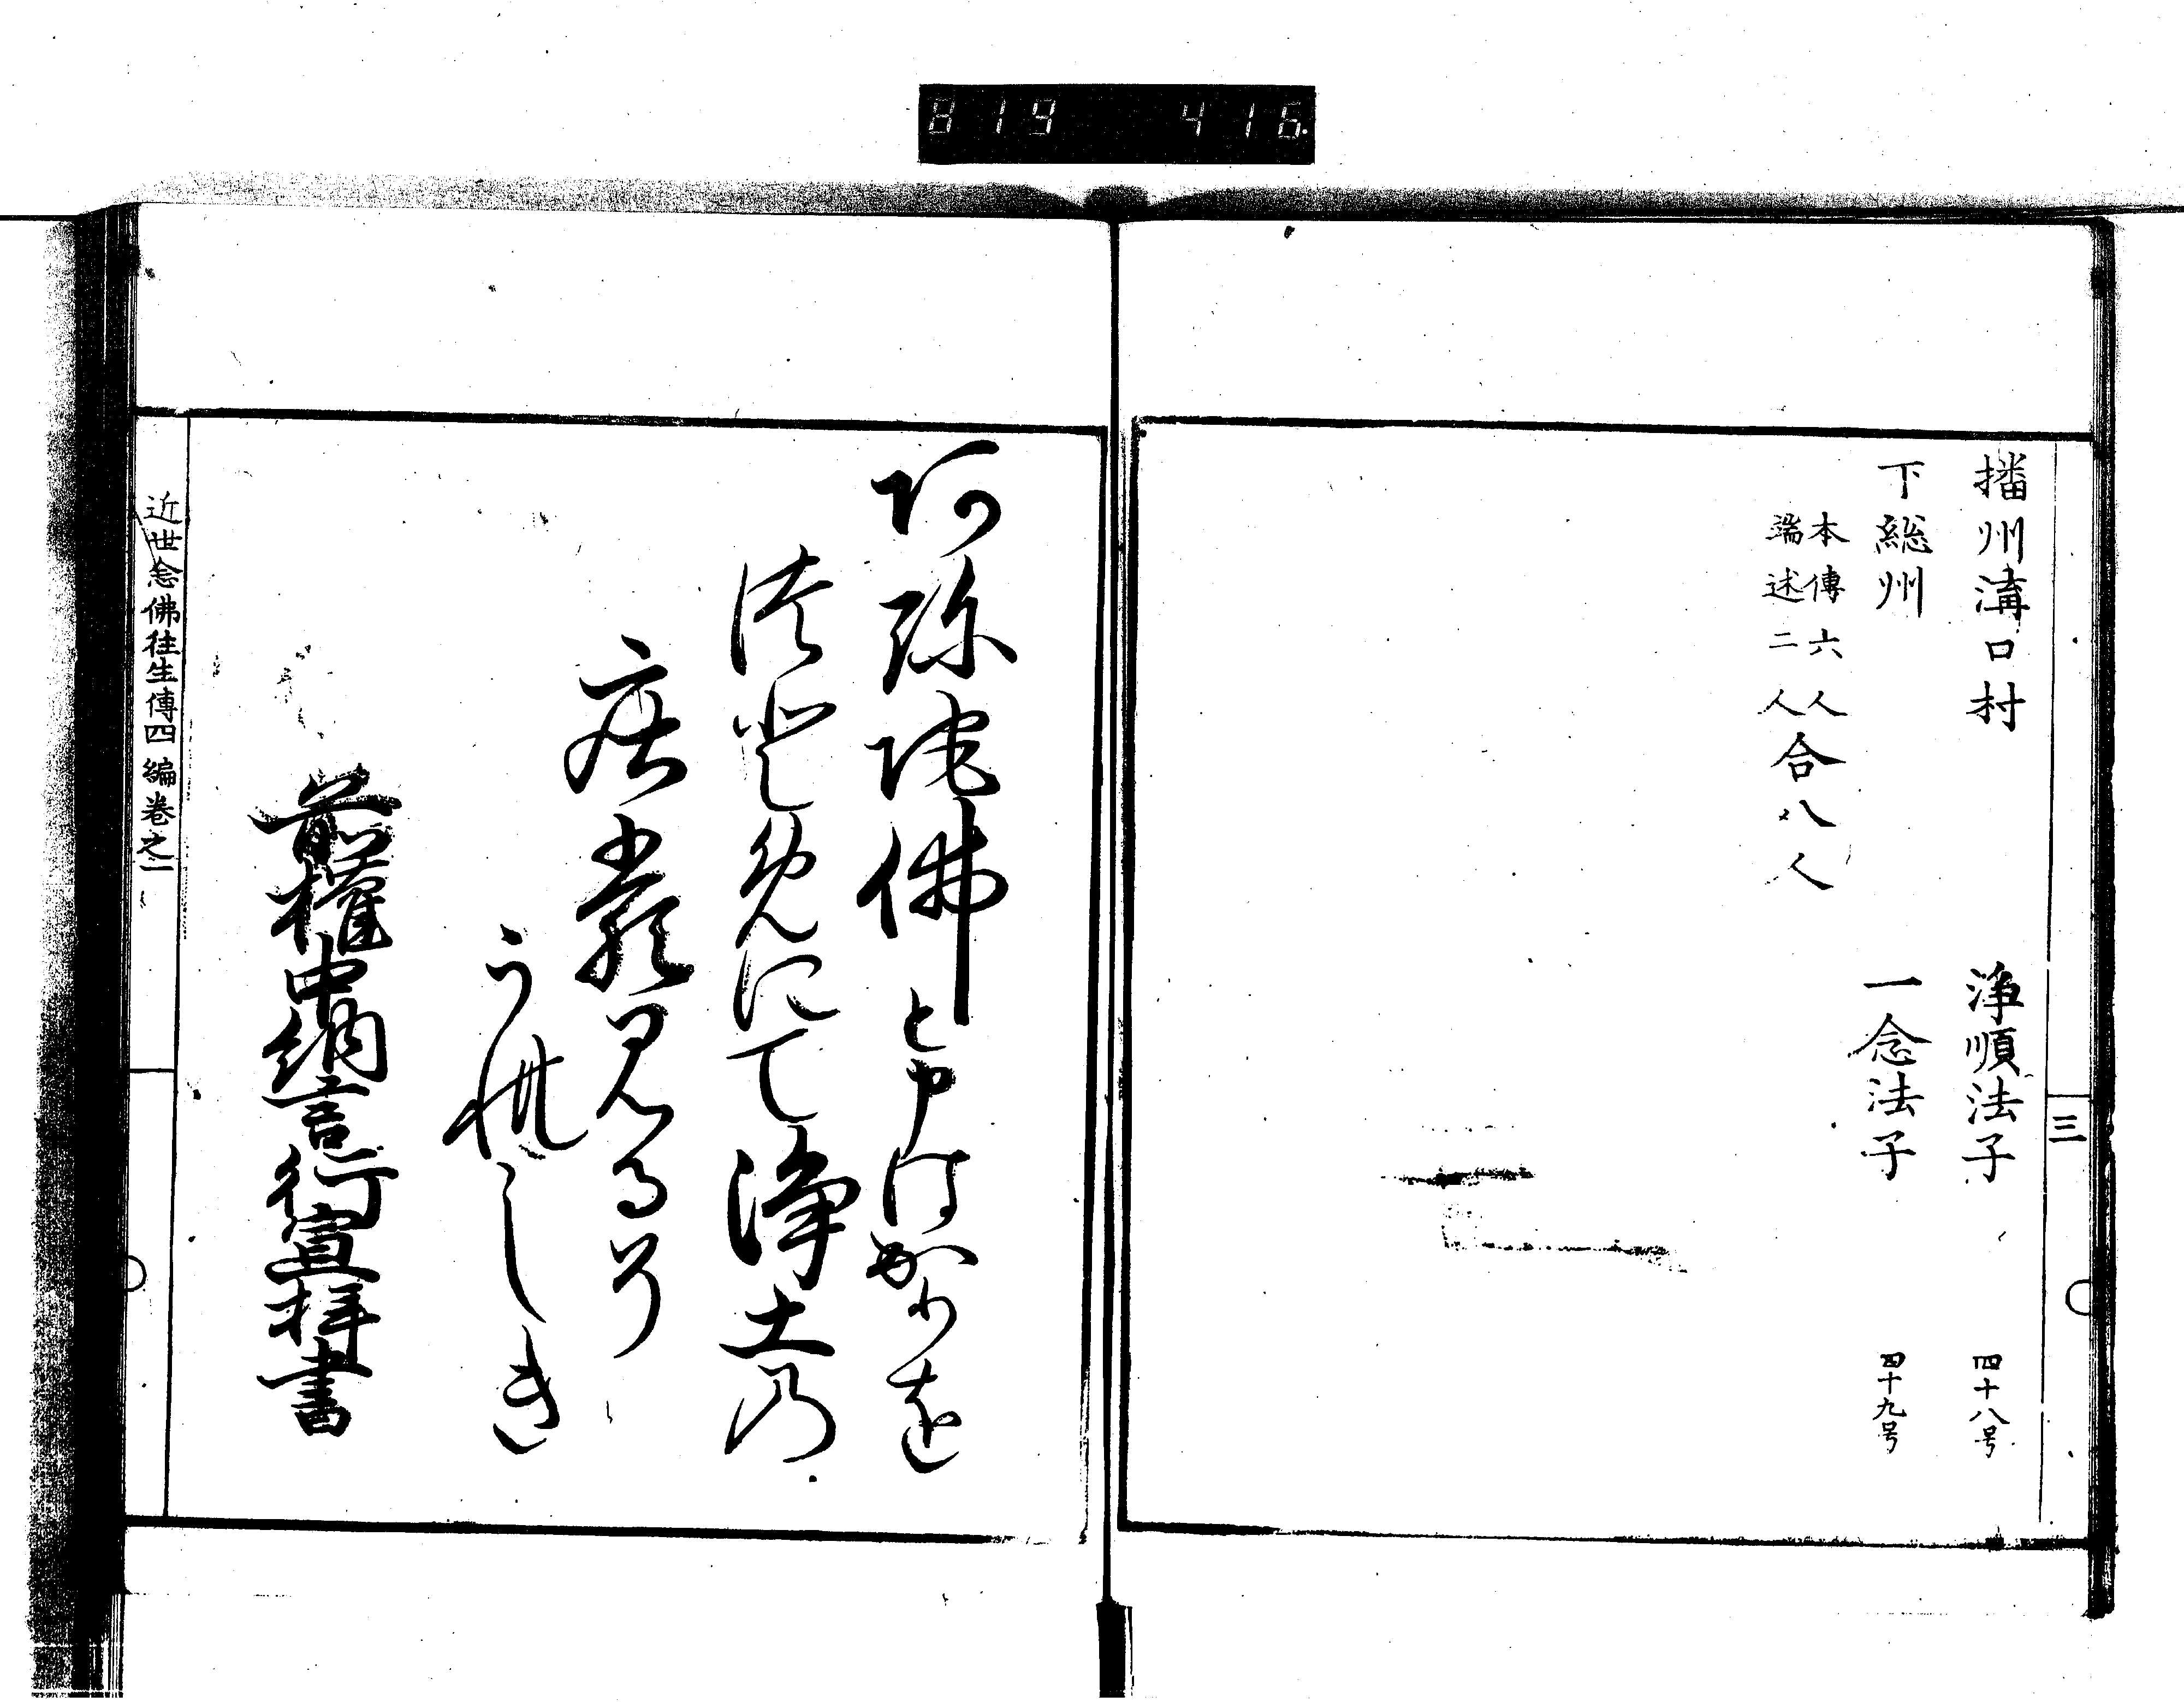 819 416
三
播州溝口村 浄順法子 四十八号
下総州 一念法子 四十九号
本傳六人
端述二人
合八人
阿弥陀佛と申はかりを
つとめにて浄土乃
荘嚴見るそ
うれしき
前權中納言行宣拝書
近世念佛往生傳四編卷之一